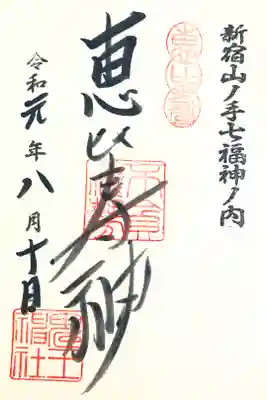 新宿山ノ手七福神ノ内
恵比寿神
令和元年八月十日